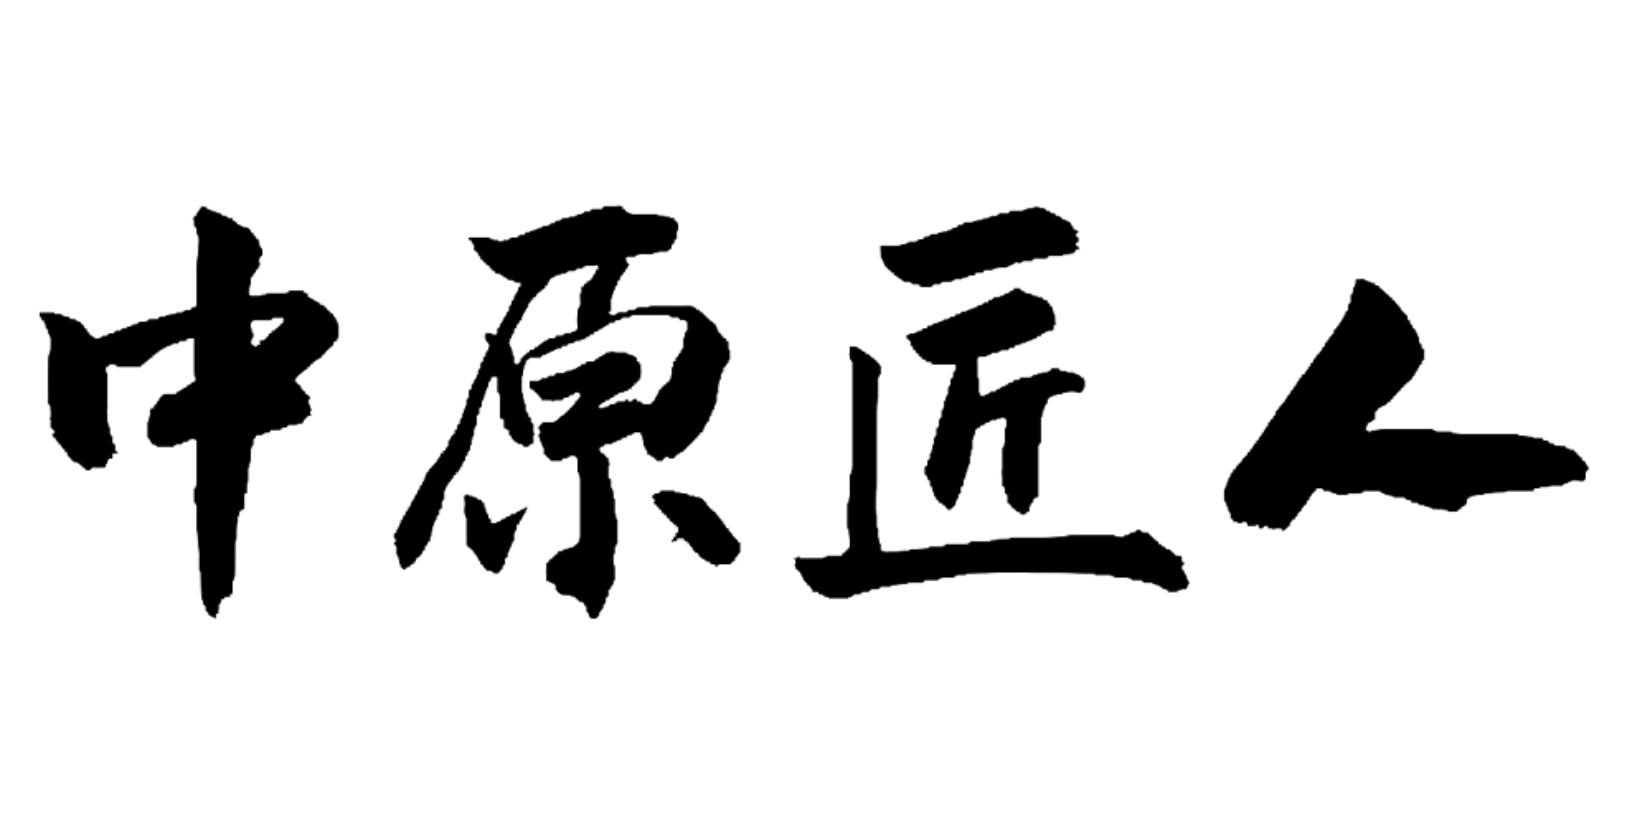 中原匠人